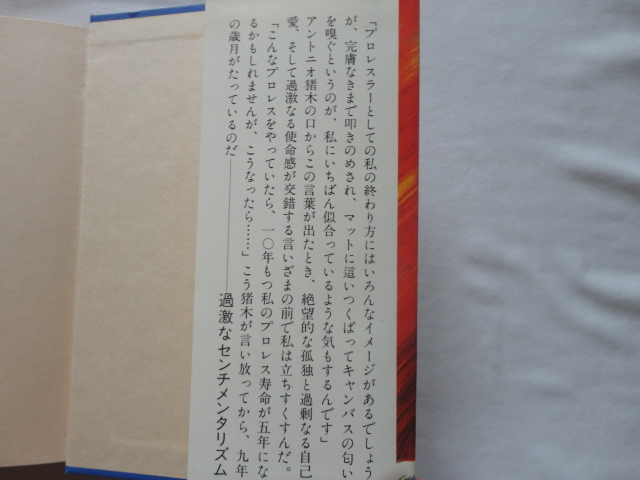 「プロレスラーとしての私の終わり方にはいろんなイメージがあるでしょう
が、完膚なきまで叩きのめされ、マットに這いつくばってキャンバスの匂い
を嗅ぐというのが、私にいちばん似合っているような気もするんです」
アントニオ猪木の口からこの言葉が出たとき、絶望的な孤独と過剰なる自己
愛、そして過激なる使命感が交錯する言いざまの前で私は立ちすくすんだ。
「こんなプロレスをやっていたら、一〇年もつ私のプロレス寿命が五年にな
るかもしれませんが、こうなったら……」こう猪木が言い放ってから、九年
の歳月がたっているのだ————過激なセンチメンタリズム